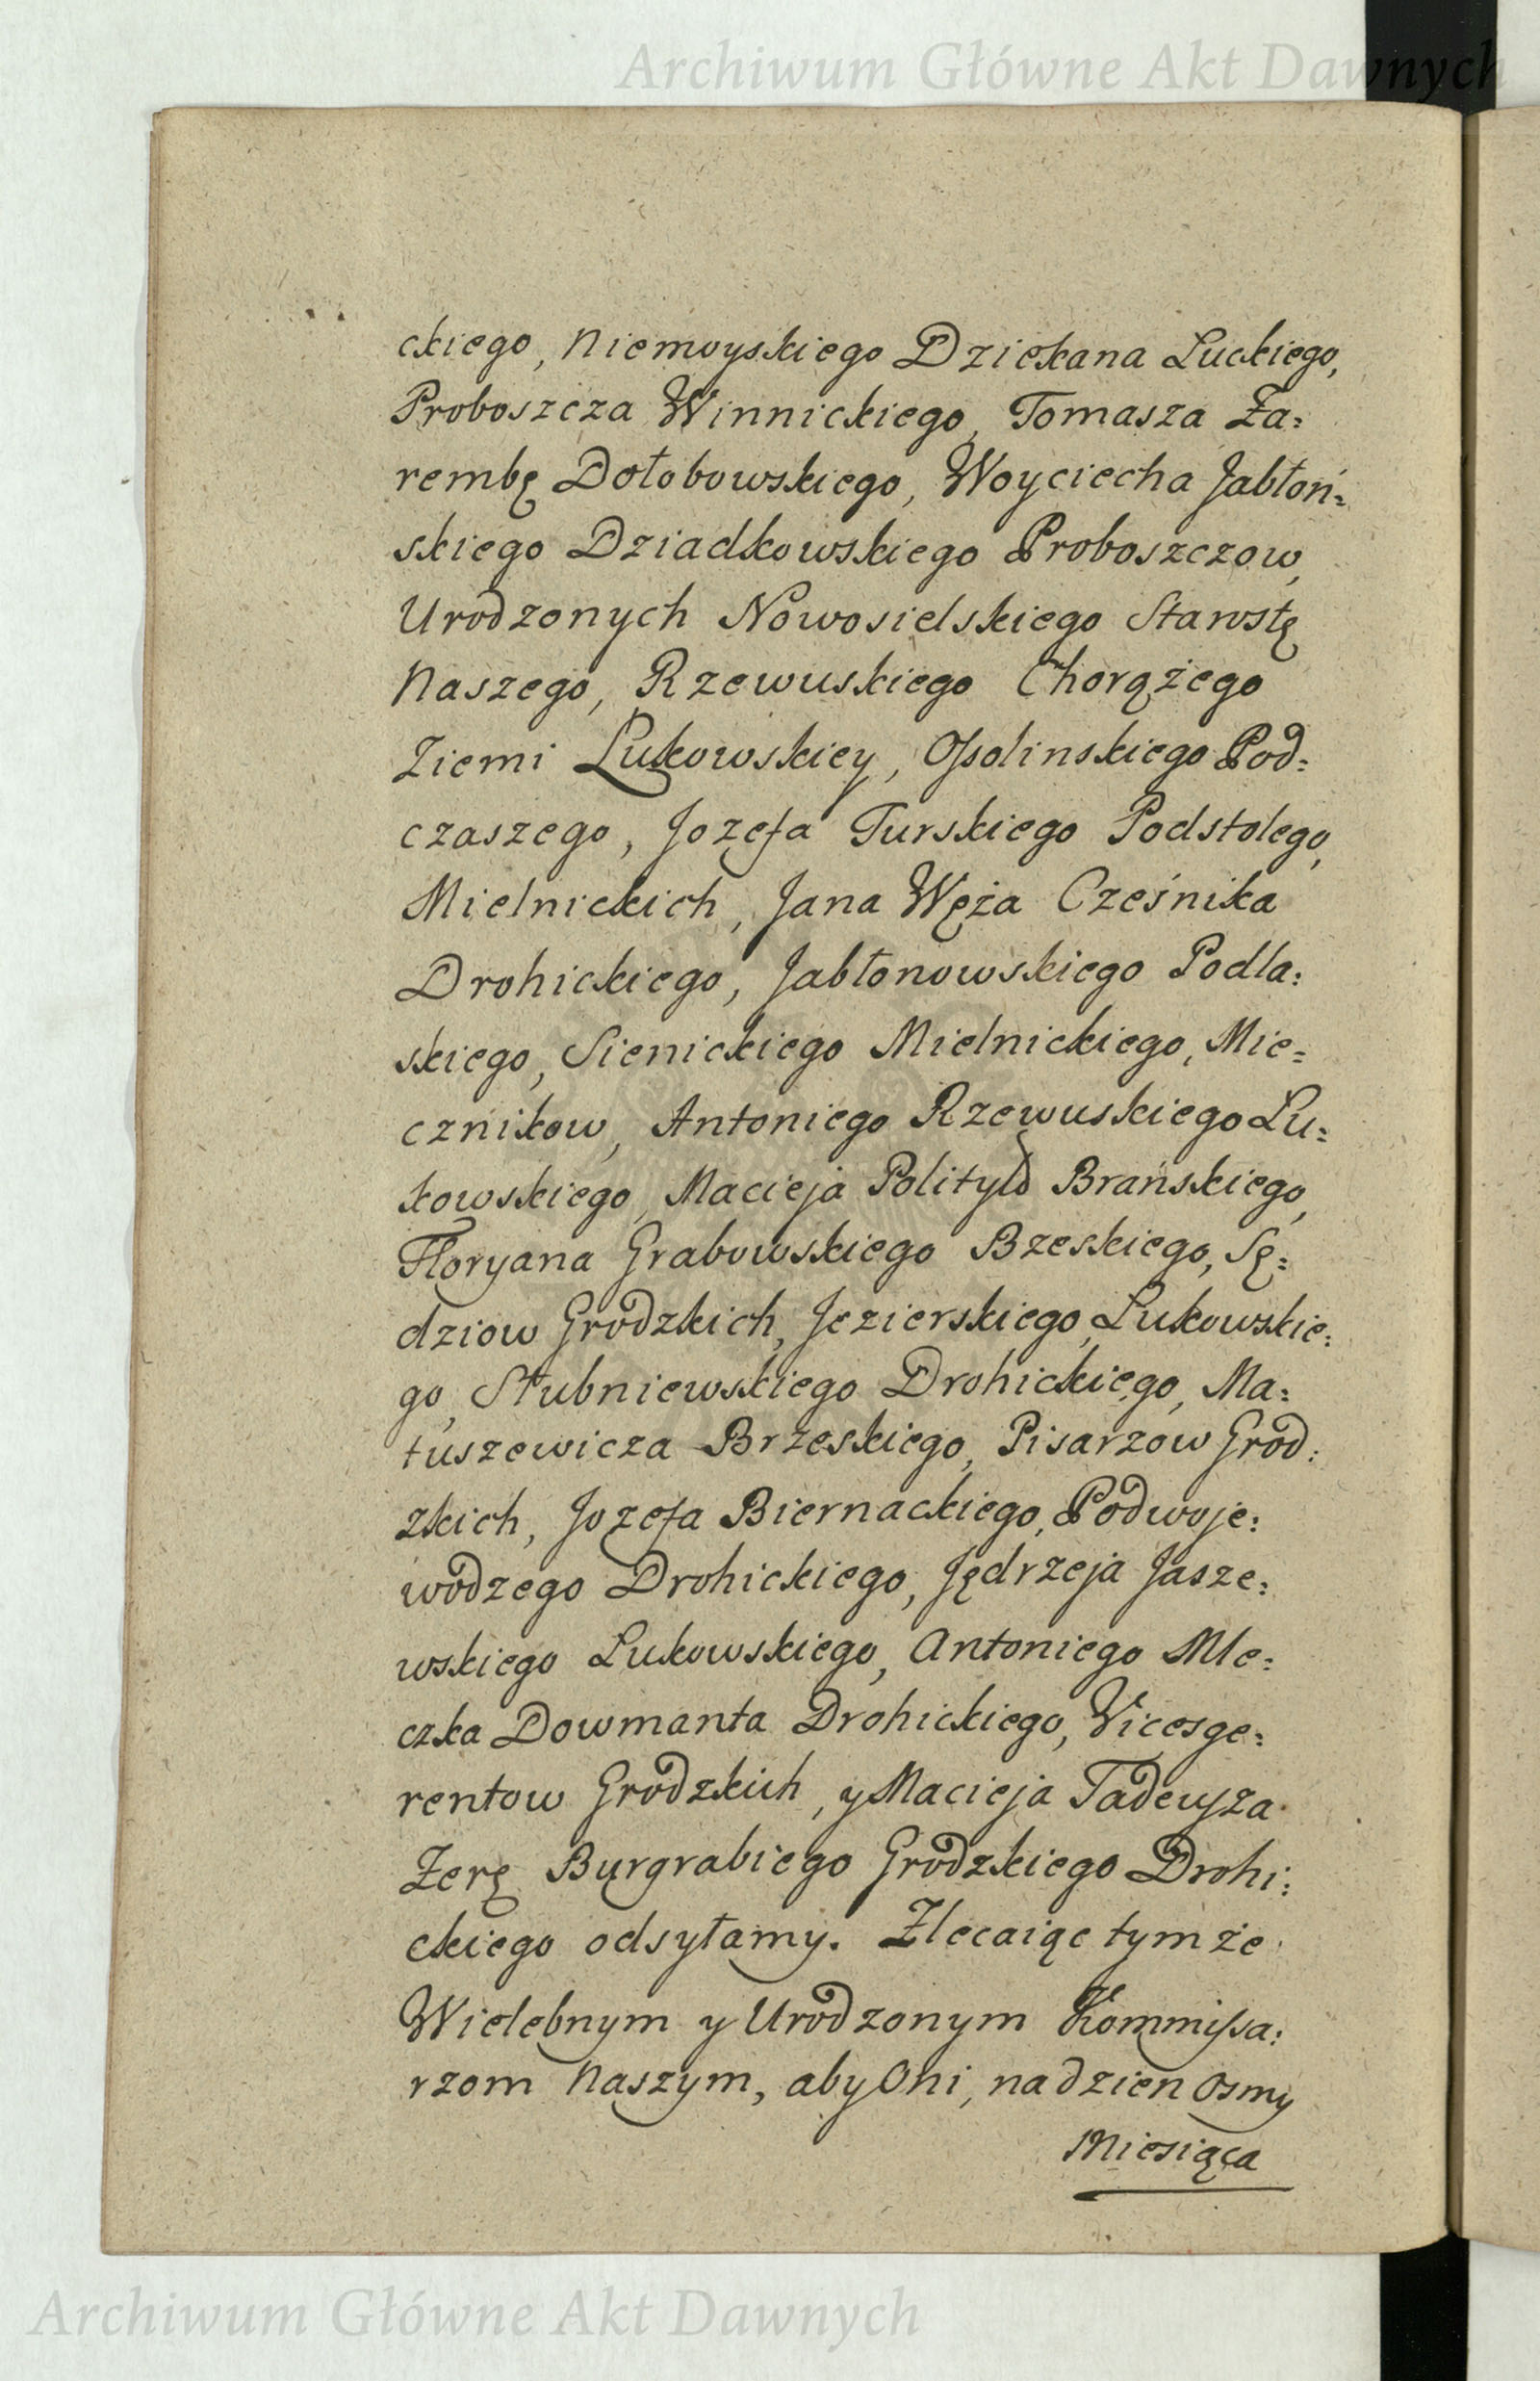 Archiwum Główne Akt Dawnych
ckiego, Niemoyskiego Dziekana Luckiego,
Proboszcza Winnickiego, Tomasza Za=
rembę Dołobowskiego, Woyciecha Jabłoń=
skiego Dziadkowskiego Proboszczow,
Urodzonych Nowosielskiego Starostę
Naszego, Rzewuskiego Chorążego
Ziemi Łukowskiey, Ossolinskiego Pod=
czaszego, Jozefa Turskiego Podstolego,
Mielnickich, Jana Węża Cześnika
Drohickiego, Jabłonowskiego Podla=
skiego, Sienickiego Mielnickiego, Mie=
cznikow, Antoniego Rzewuskiego Lu=
kowskiego, Macieja Polityło Brańskiego,
Floryana Grabowskiego Bzeskiego, Sę=
dziow Grodzkich, Jezierskiego Lukowskie=
go, Stubniewskiego Drohickiego, Ma=
tuszewicza Brzeskiego, Pisarzow Grod=
zkich, Jozefa Biernackiego, Podwoje=
wodzego Drohickiego, Jędrzeja Jasze=
wskiego Lukowskiego, Antoniego Mle=
czka Dowmanta Drohickiego, Vicesge=
rentow Grodzkich, y Macieja Tadeusza
Zerę Burgrabiego Grodzkiego Drohi=
ckiego odsyłamy. Zlecaiąc tymże
Wielebnym y Urodzonym Kommissa=
rzom Naszym, aby Oni, na dzien Osmy
Miesiąca
Archiwum Główne Akt Dawnych